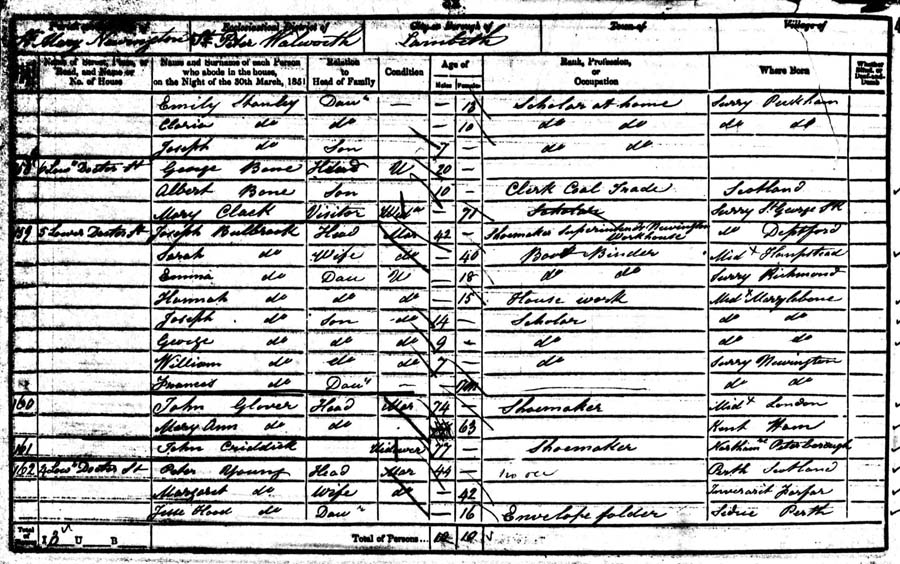 Ecclesiastical District of City or Borough of Town of Village of
St Mary Newington St Peter Walworth Lambeth
Name of Street, Place, or Road, and Name or No. of House
Name and Surname of each Person who abode in the house, on the Night of the 30th March, 1851
Relation to Head of Family
Condition
Age of Males Females
Rank, Profession, or Occupation
Where Born
Whether Blind, or Deaf-and-Dumb
Emily Stanley Daur — — 13 Scholar at home Surry Peckham
Clara do do — 10 do do do do
Joseph do Son 7 — do do
Lowr Doctor St George Bone Head U 20 —
Albert Bone Son 10 — Clerk Coal Trade Scotland
Mary Clack Visitor Widw — 71 Scholar Surry St George
159 5 Lower Doctor St Joseph Bulbrook Head Mar 42 — Shoemaker Superintendt Newington Workhouse do Deptford
Sarah do Wife do — 40 Boot Binder Midx Hampstead
Emma do Dau U — 18 do do Surry Richmond
Hannah do do do — 15 House work Midx Marylebone
Joseph do Son do 14 — Scholar do do
George do do do 9 — do do do
William do do do 7 — do Surry Newington
Frances do Daur — do do
160 John Glover Head Mar 74 — Shoemaker Midx London
Mary Ann do do 63 Kent Ham
161 John Criddick Widower 77 Shoemaker Peterborough
162 Lowr Doctor St Peter Young Head Mar 44 — Perth Scotland
Margaret do Wife do — 42 Forfar
Hood do Daur — 16 Envelope folder Perth
Total of I U B Total of Persons... 10 10